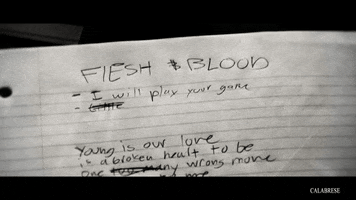 FlESH & BLOOD
- I will play your game
-
Young is our love
is a broken heart to be
one too many wrong move
to me
CALABRESE